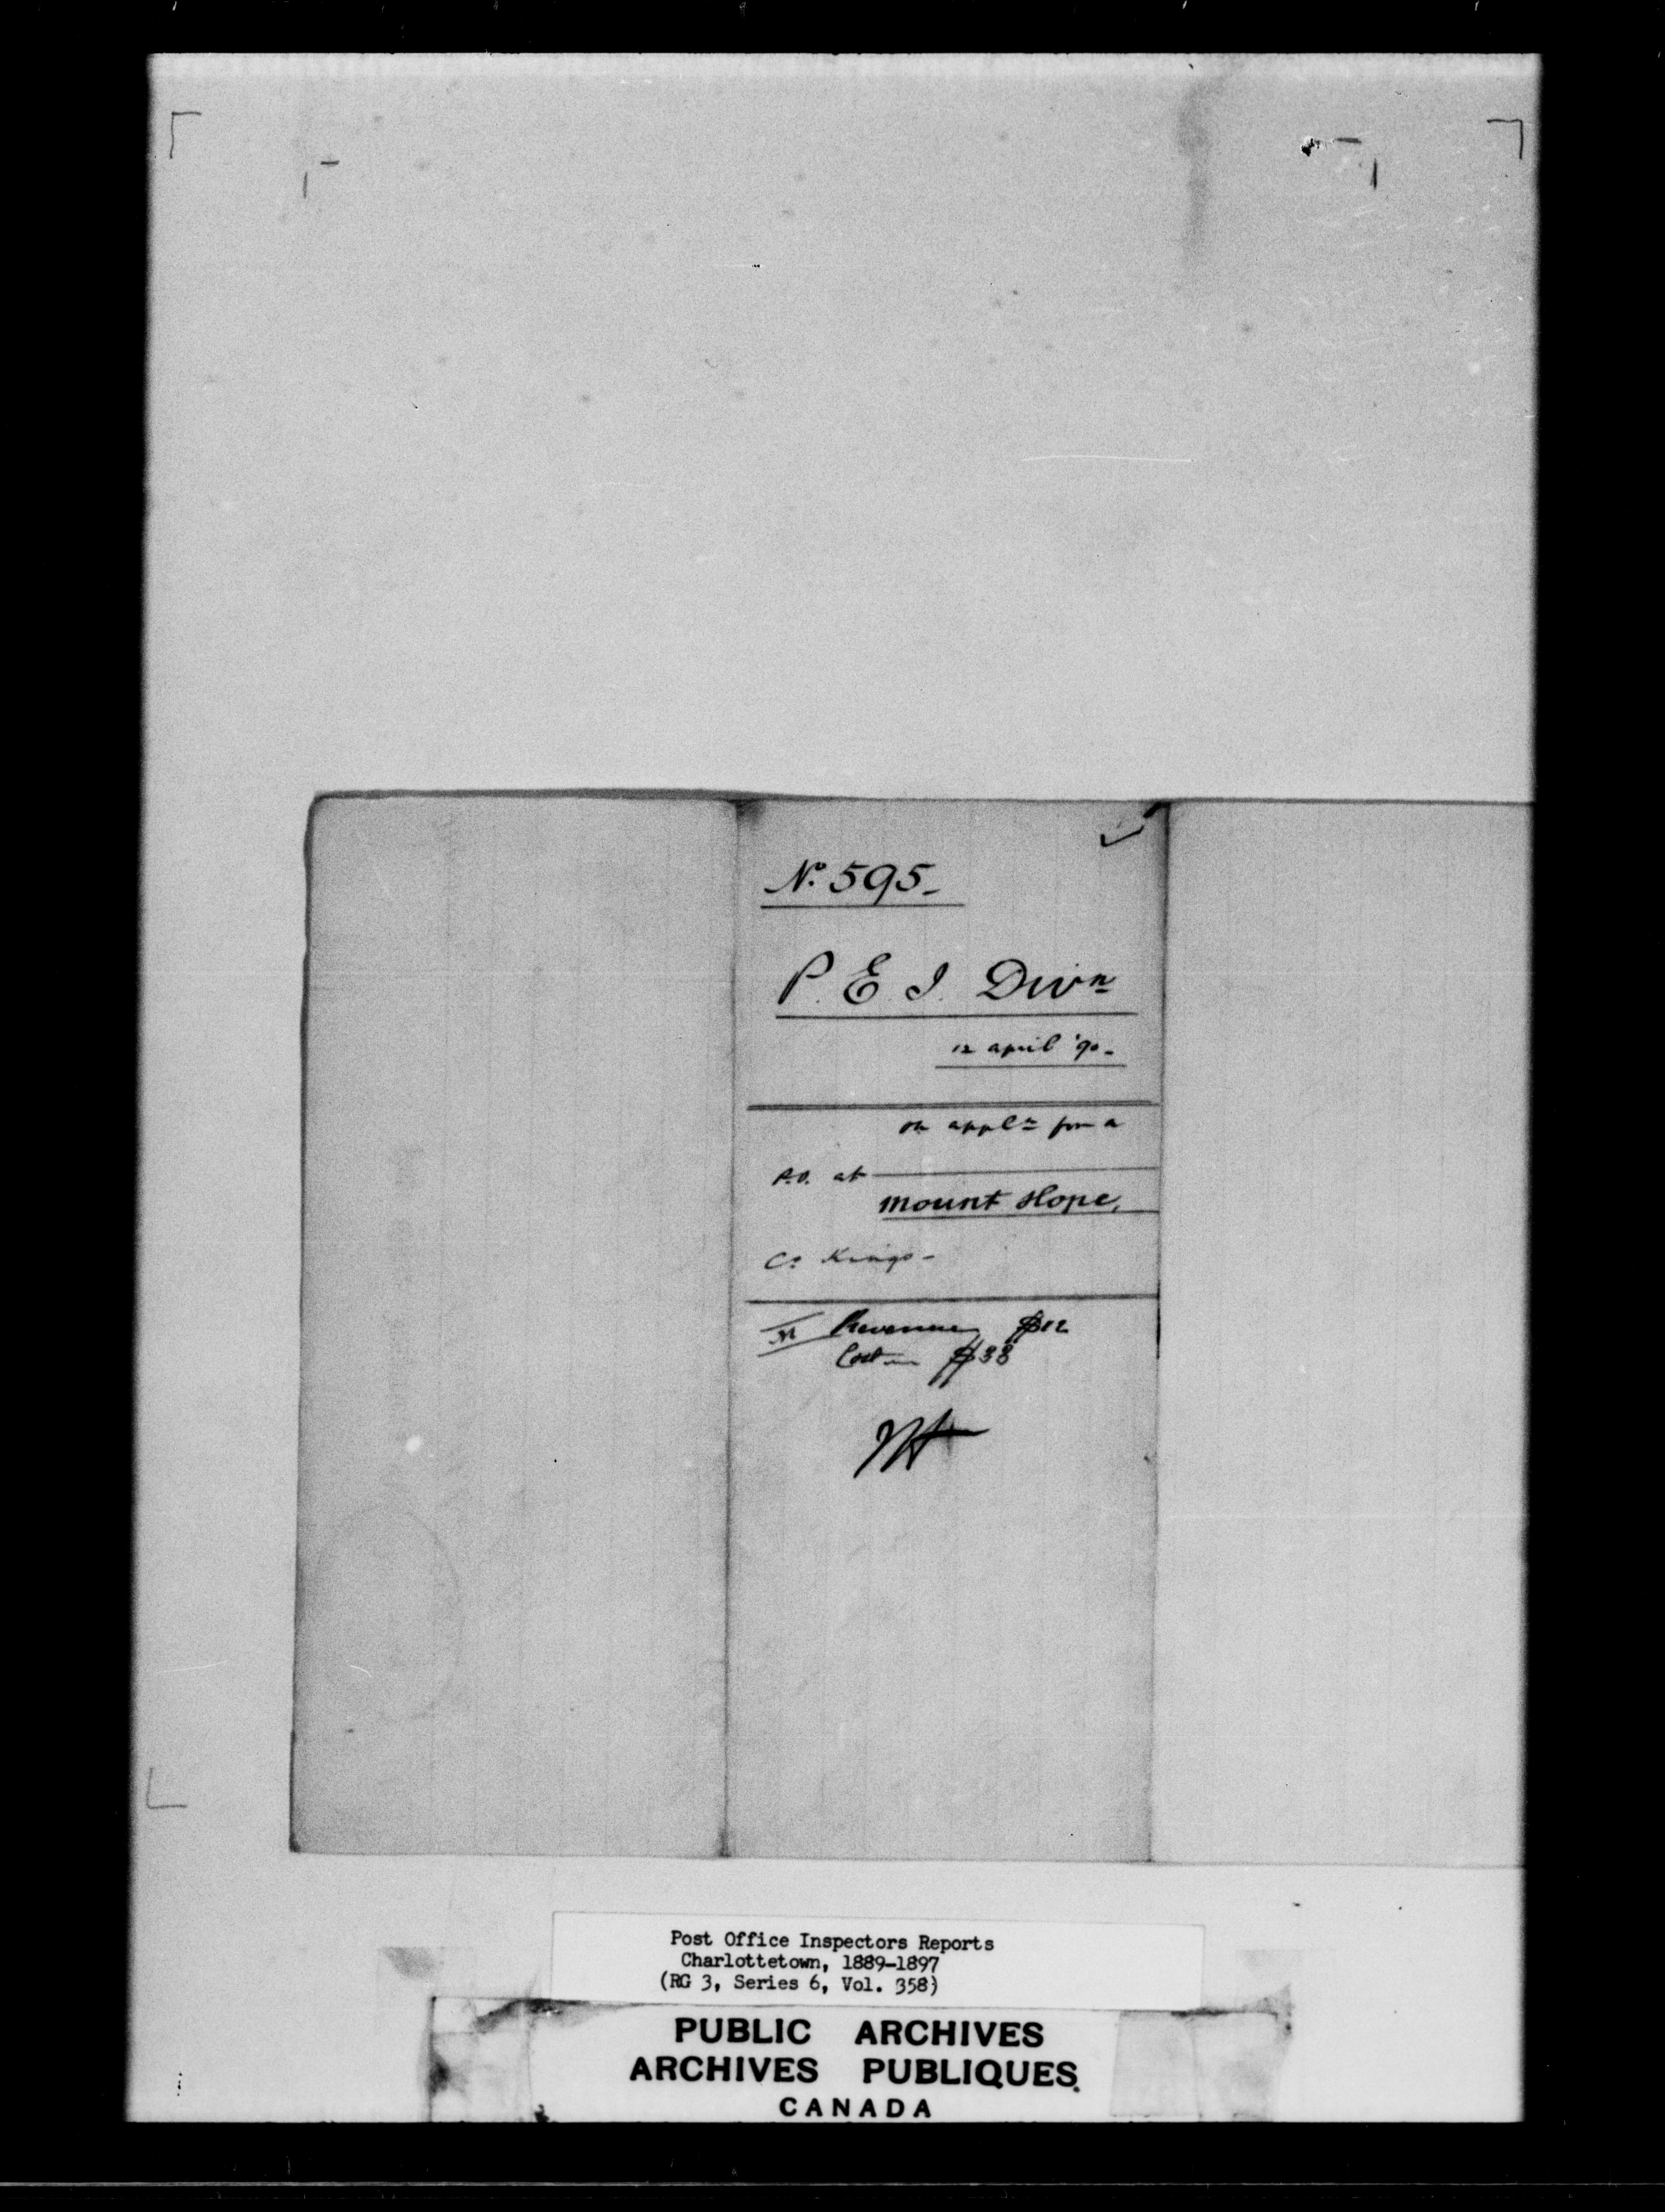 No. 595-
P. E. I. Divn
12 april '90-
on appln for a
P.O. at
Mount Hope,
Co Kings-
Revenue $12
Cost $38
Post Office Inspectors Reports
Charlottetown, 1889-1897
(RG 3, Series 6, Vol. 358)
PUBLIC ARCHIVES
ARCHIVES PUBLIQUES
CANADA